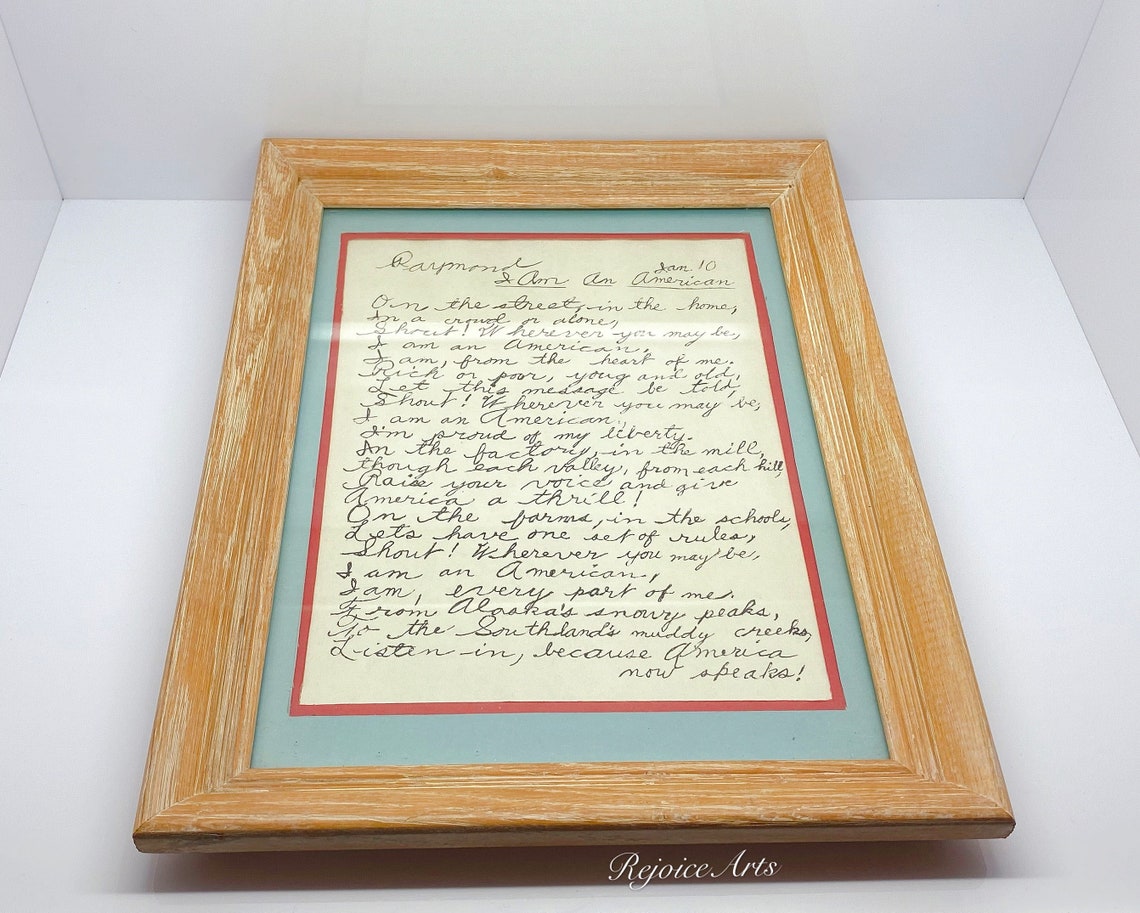 Raymond Jan. 10
I Am An American
On the street, in the home,
In a crowd or alone,
Shout! Wherever you may be,
I am an American,
I am, from the heart of me.
Rich or poor, youg and old,
Let this message be told,
Shout! Wherever you may be,
I am an American,
I'm proud of my liberty.
In the factory, in the mill,
though each valley, from each hill,
Raise your voice and give
America a thrill!
On the farms, in the schools,
Lets have one set of rules,
Shout! Wherever you may be,
I am an American,
I am, every part of me.
From Alaska's snowy peaks,
To the Southland's muddy creeks,
Listen in, because America
now speaks!
Rejoice Arts